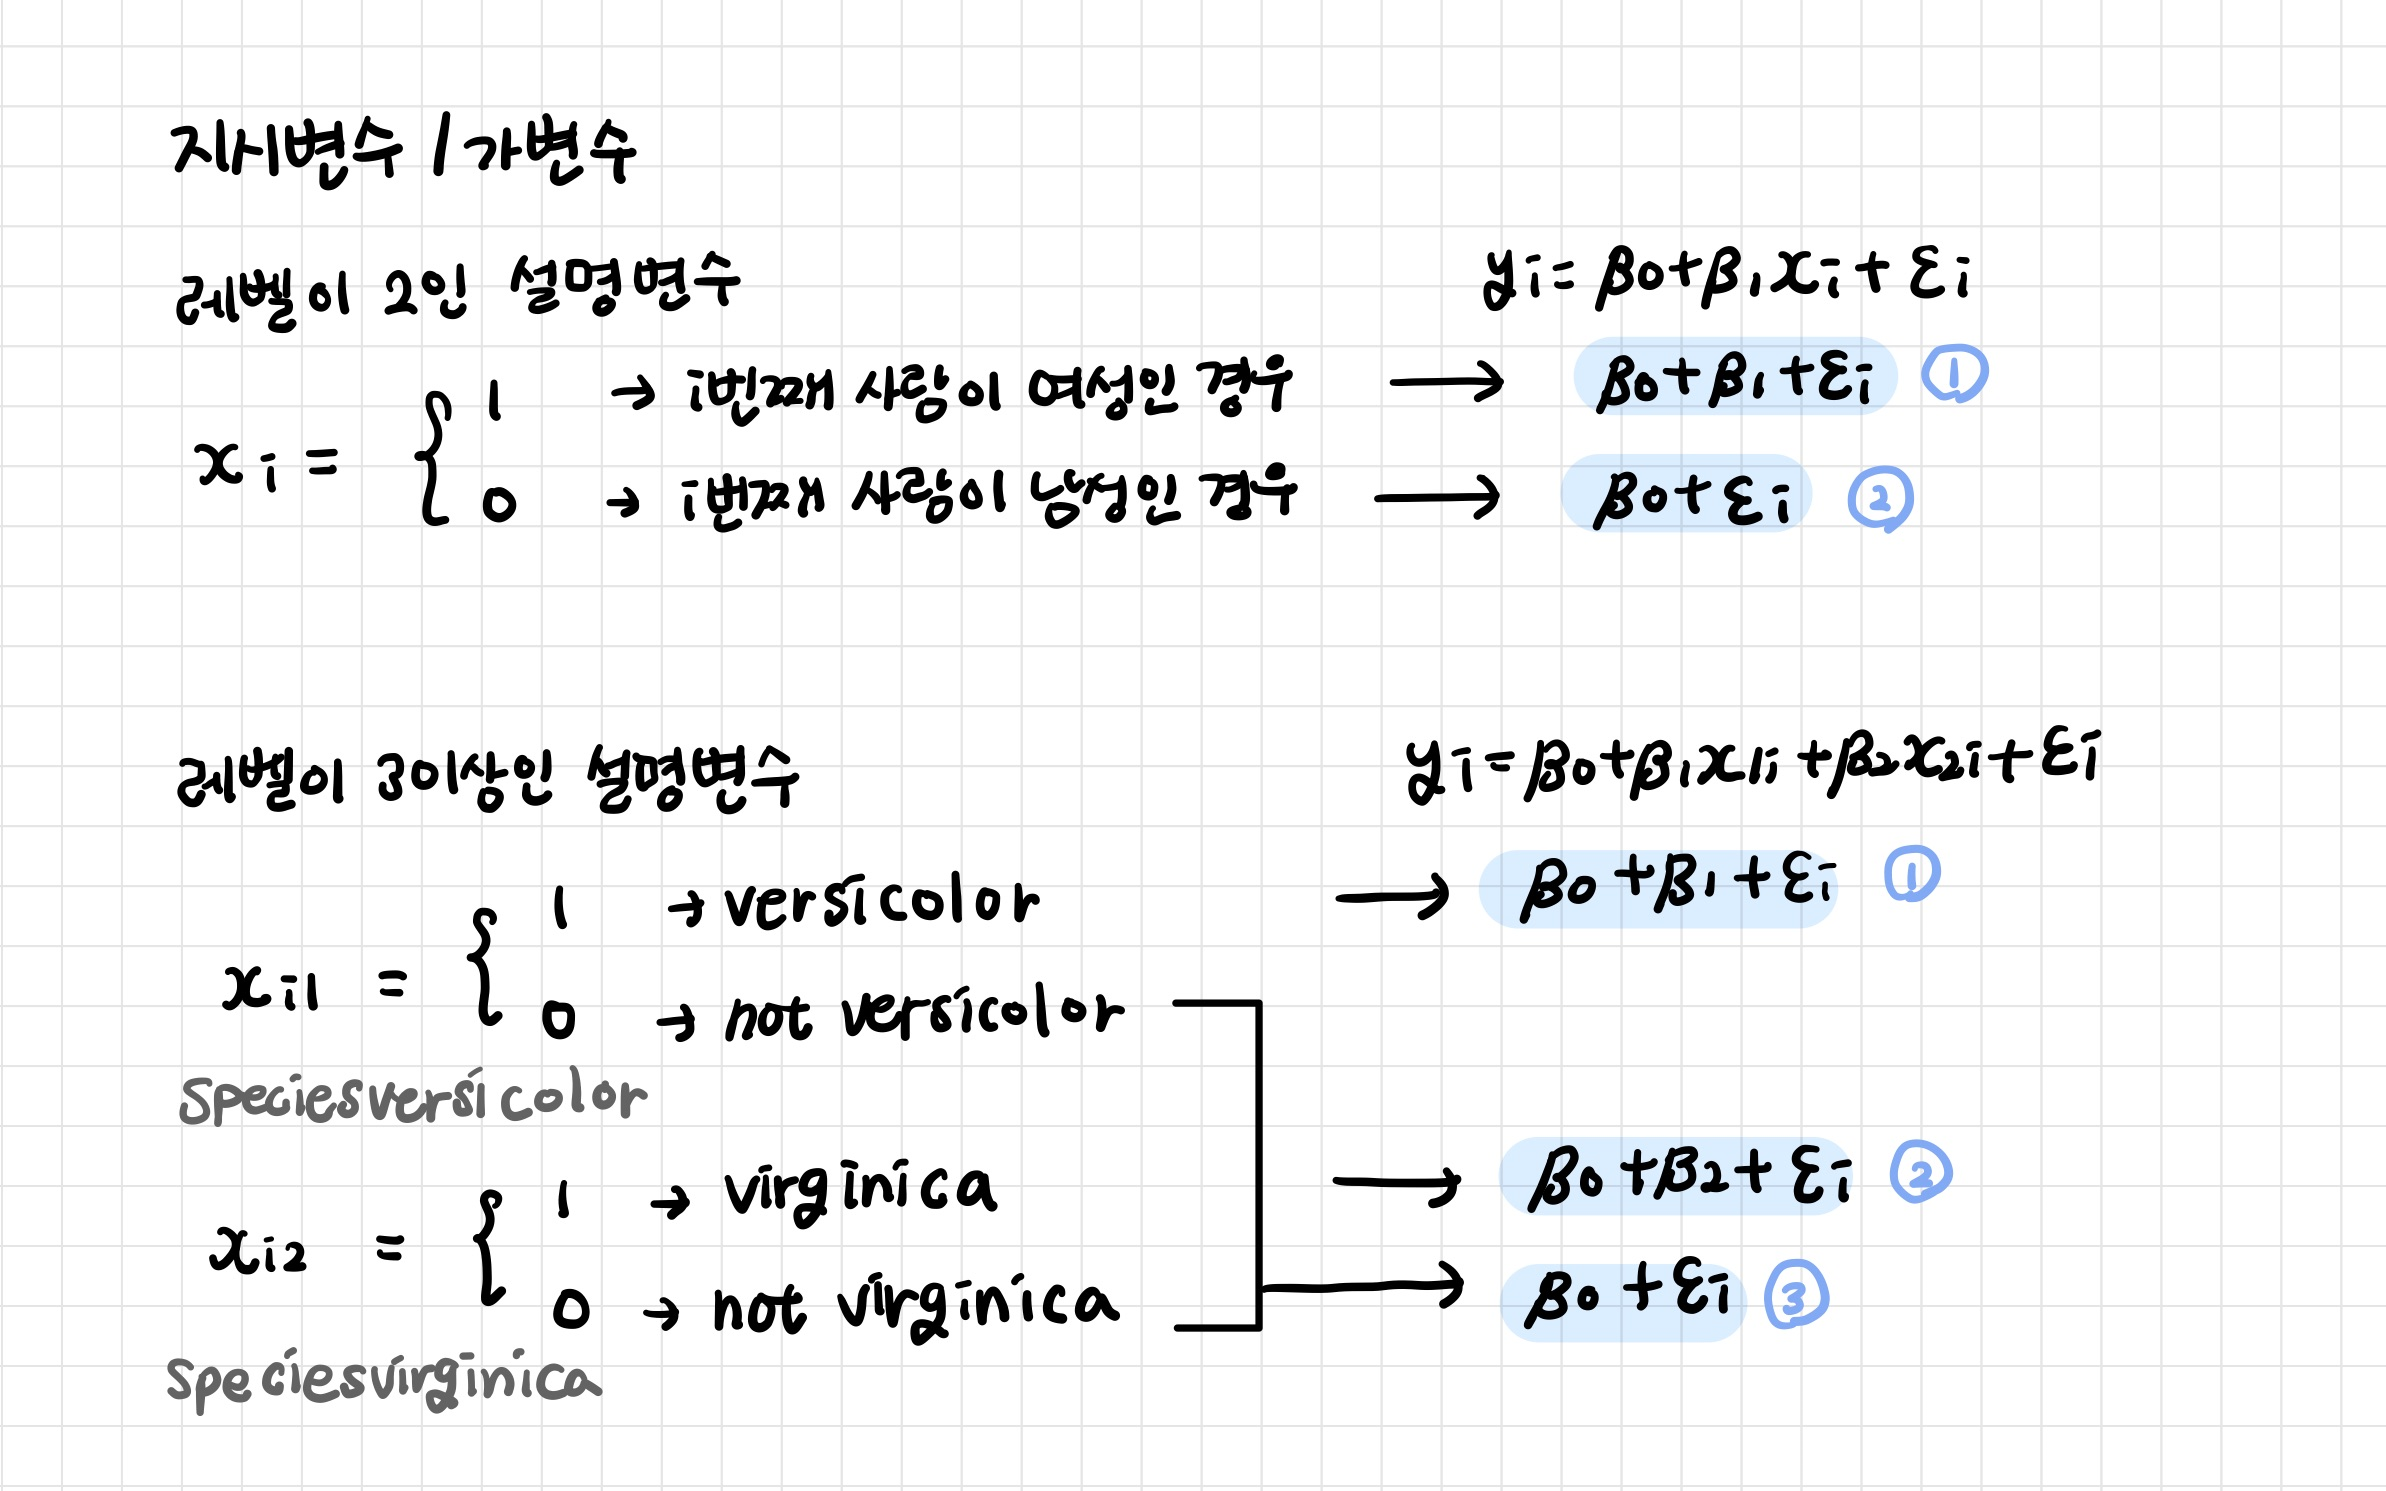 지시변수 / 가변수
레벨이 2인 설명변수
yi = β0+β1xi+εi
xi = {
1 → i번째 사람이 여성인 경우 → β0+β1+εi ①
0 → i번째 사람이 남성인 경우 → β0+εi ②
레벨이 3이상인 설명변수
yi = β0+β1x1i+β2x2i+εi
xi1 = {
1 → versicolor → β0+β1+εi ①
0 → not versicolor
Speciesversicolor
xi2 = {
1 → virginica → β0+β2+εi ②
0 → not virginica → β0+εi ③
Speciesvirginica